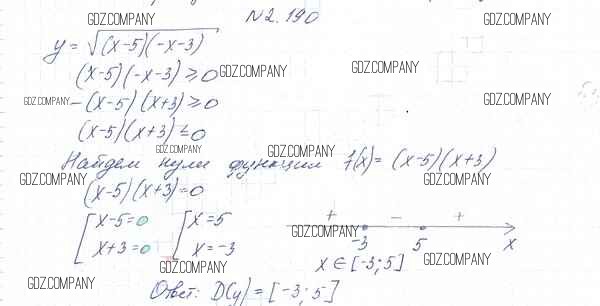 GDZ.COMPANY №2.190 GDZ.COMPANY
y = √(x-5)(-x-3)
(x-5)(-x-3) ≥ 0 GDZ.COMPANY GDZ.COMPANY
GDZ.COMPANY -(x-5)(x+3) ≥ 0 GDZ.COMPANY
(x-5)(x+3) ≤ 0
GDZ.COMPANY GDZ.COMPANY
Найдем нули функции f(x) = (x-5)(x+3)
GDZ.COMPANY GDZ.COMPANY
(x-5)(x+3)=0
[ x-5=0 [ x=5 + - +
x+3=0 x=-3 GDZ.COMPANY -3 5 x
GDZ.COMPANY x ∈ [-3; 5] GDZ.COMPANY
GDZ.COMPANY
Ответ: D(y) = [-3; 5]